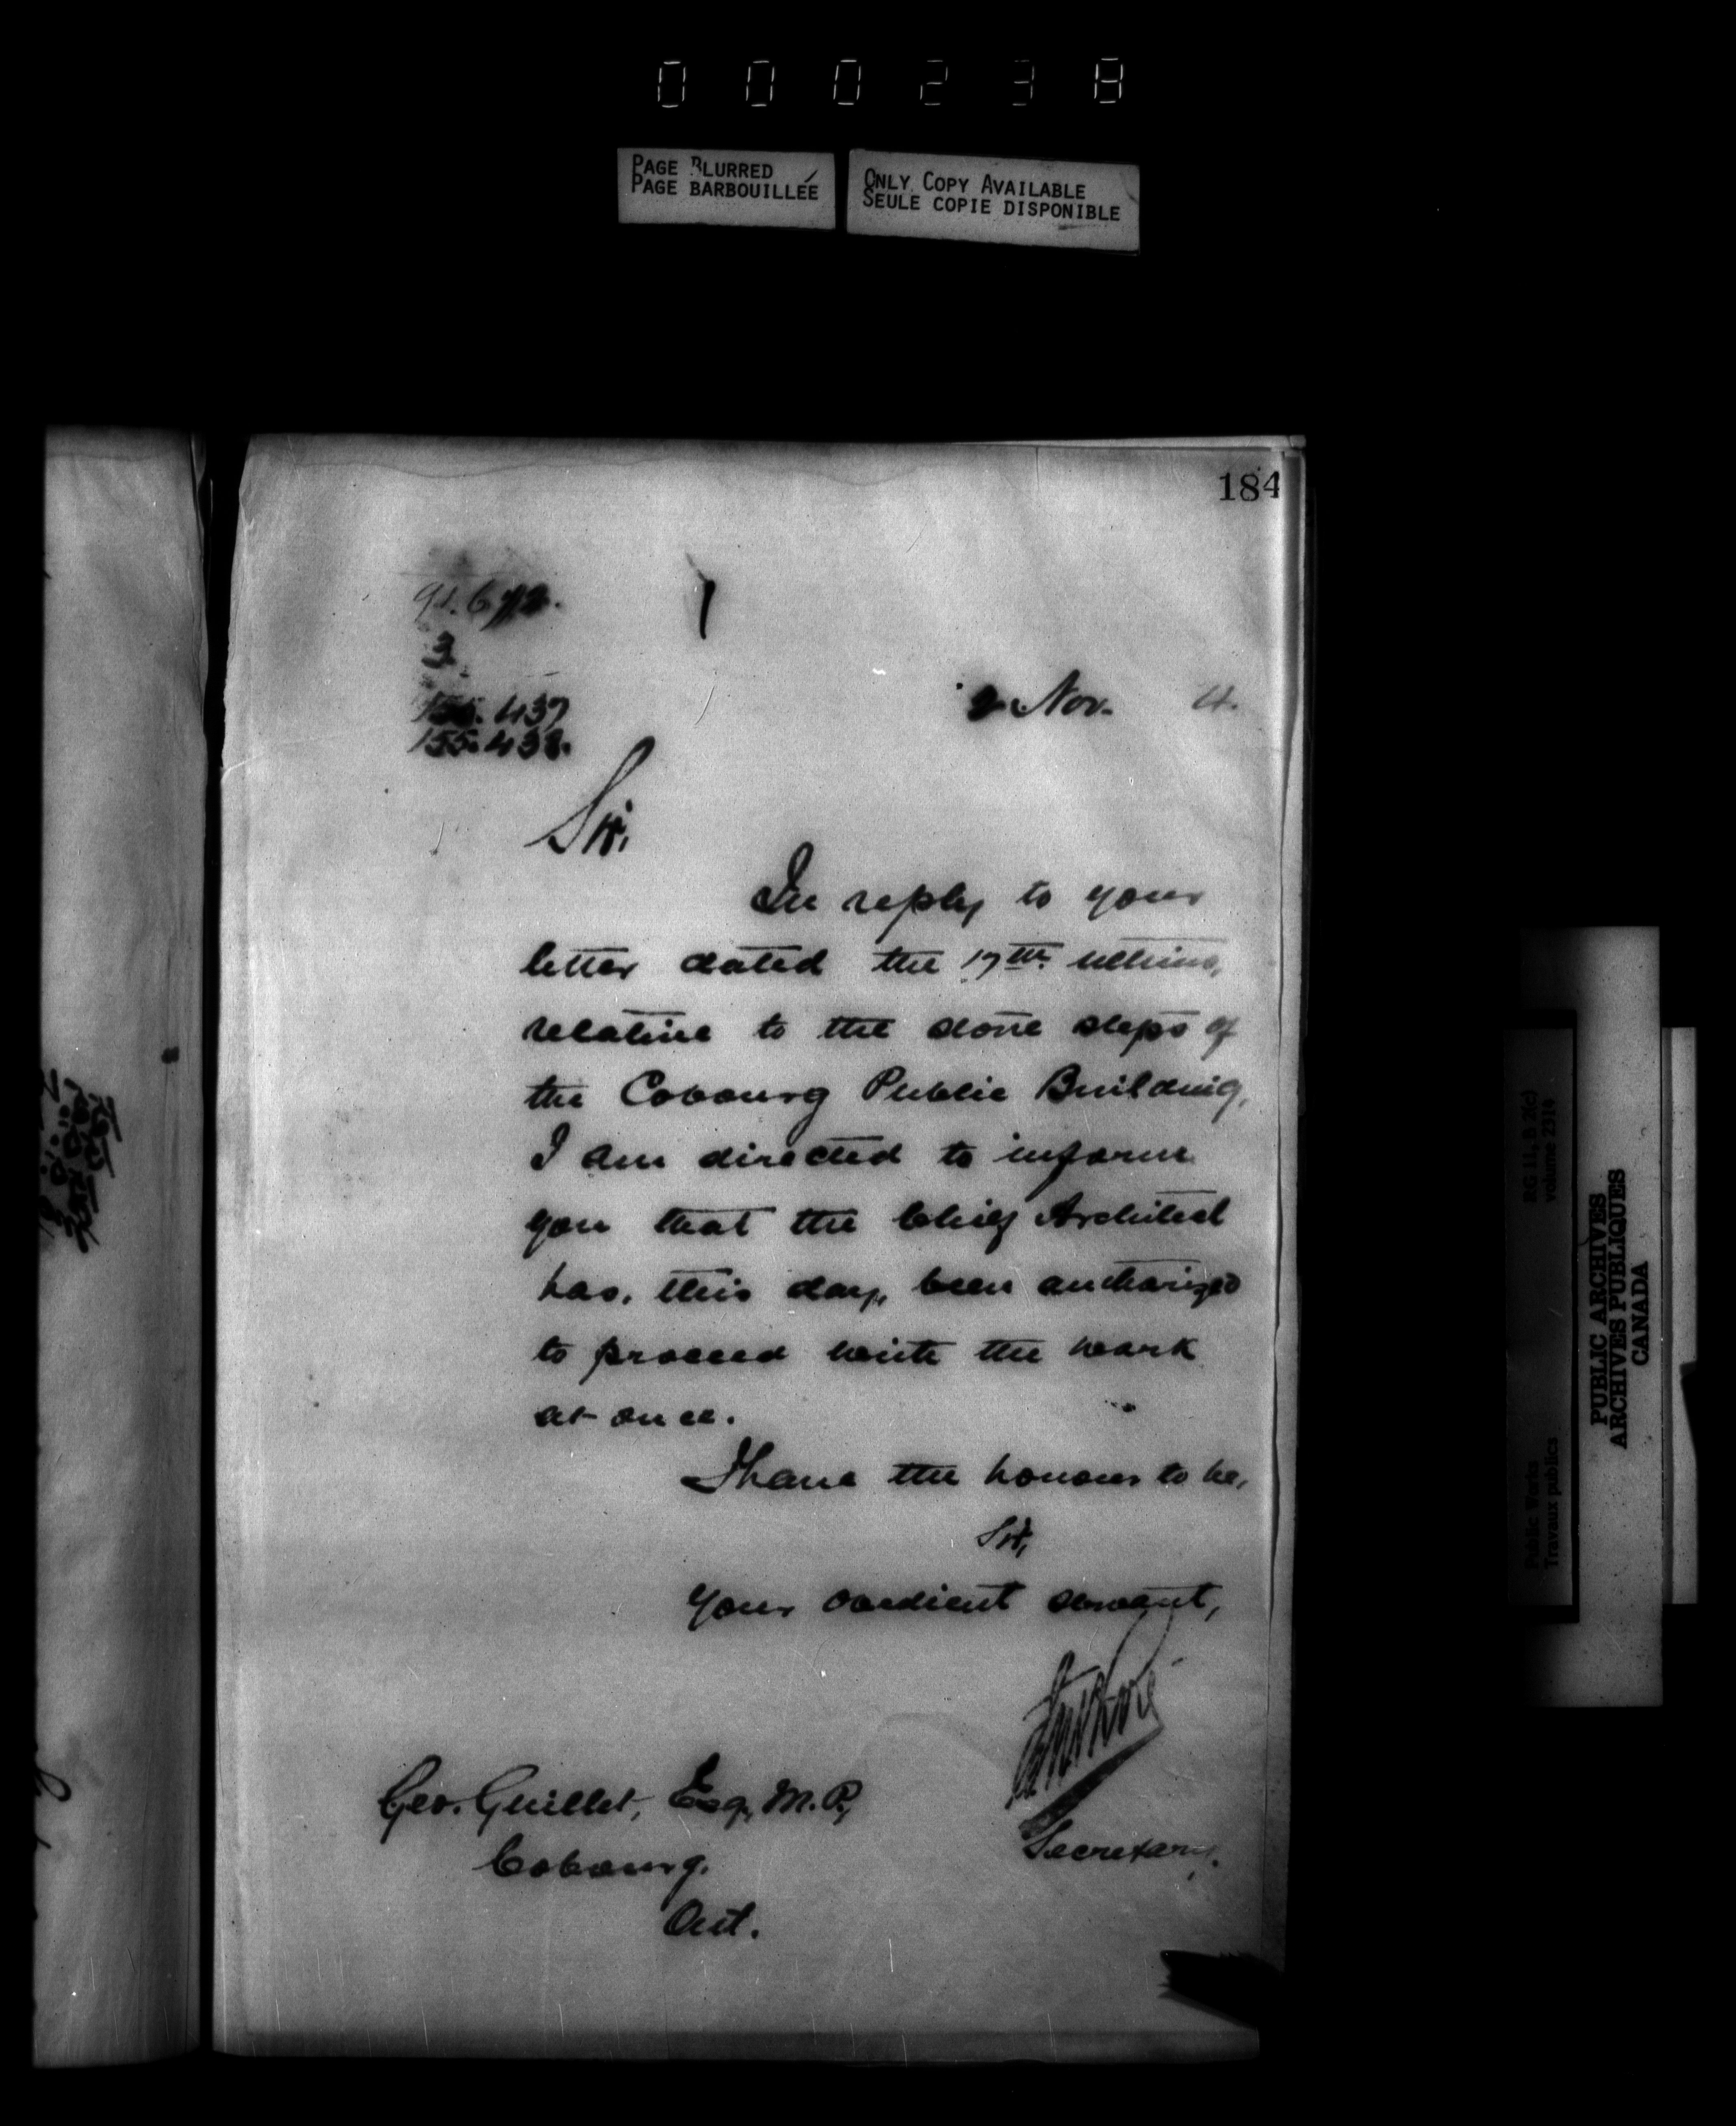 000238
PAGE BLURRED
PAGE BARBOUILLÉE
ONLY COPY AVAILABLE
SEULE COPIE DISPONIBLE
184
3
155.437
155.438.
2 Nov. 4.
Sir,
In reply to your
letter dated the 17th ultimo,
relative to the stone steps of
the Cobourg Public Building,
I am directed to inform
you that the Chief Architect
has, this day, been authorized
to proceed with the work
at once.
I have the honour to be,
Sir,
Your obedient servant,
Secretary.
Geo. Guillet, Esq, M.P.,
Cobourg.
Ont.
RG 11, B 2(c)
volume 2310
Public Works
Travaux publics
PUBLIC ARCHIVES
ARCHIVES PUBLIQUES
CANADA